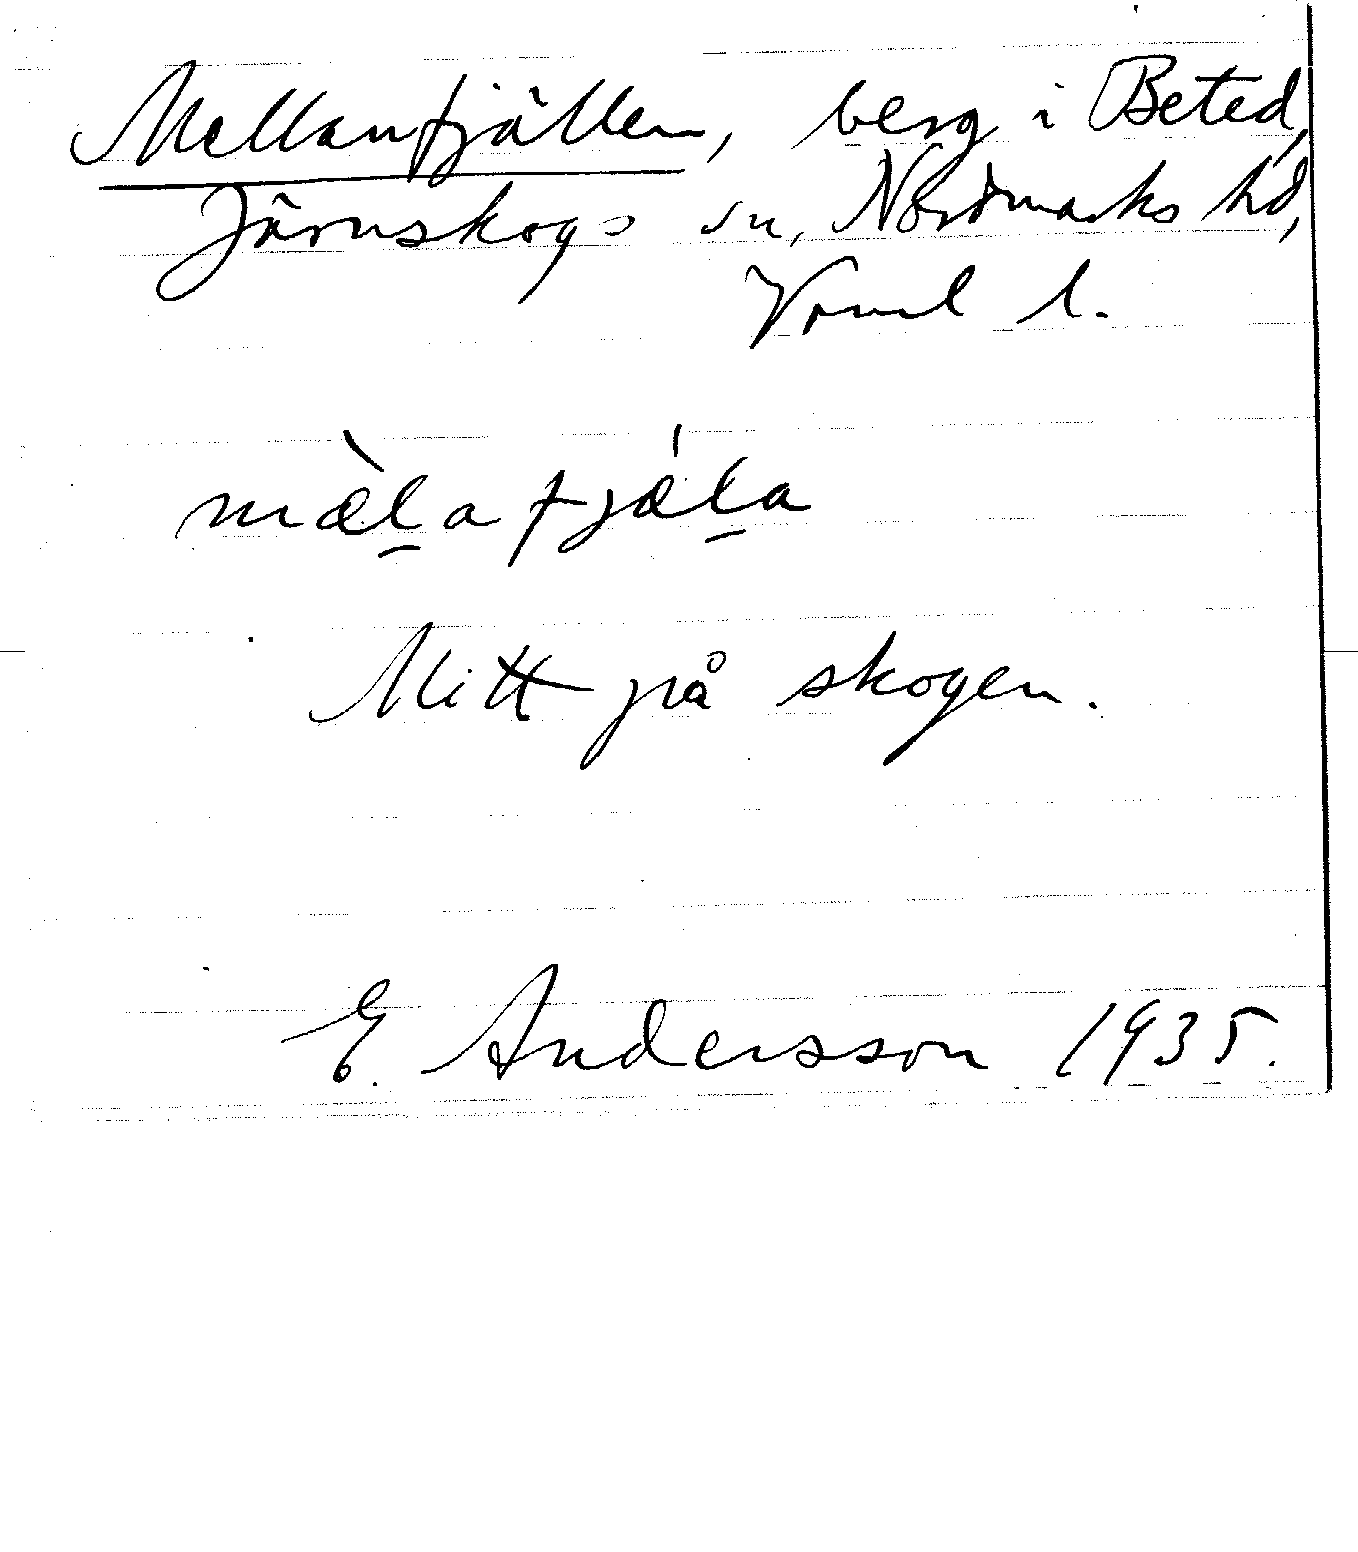 Mellanfjällen, berg i Beted,
Järnskogs sn, Nordmarks hd,
Värml l.
mæ̀l̠afjǽl̠a
Mitt på skogen.
E. Andersson 1935.